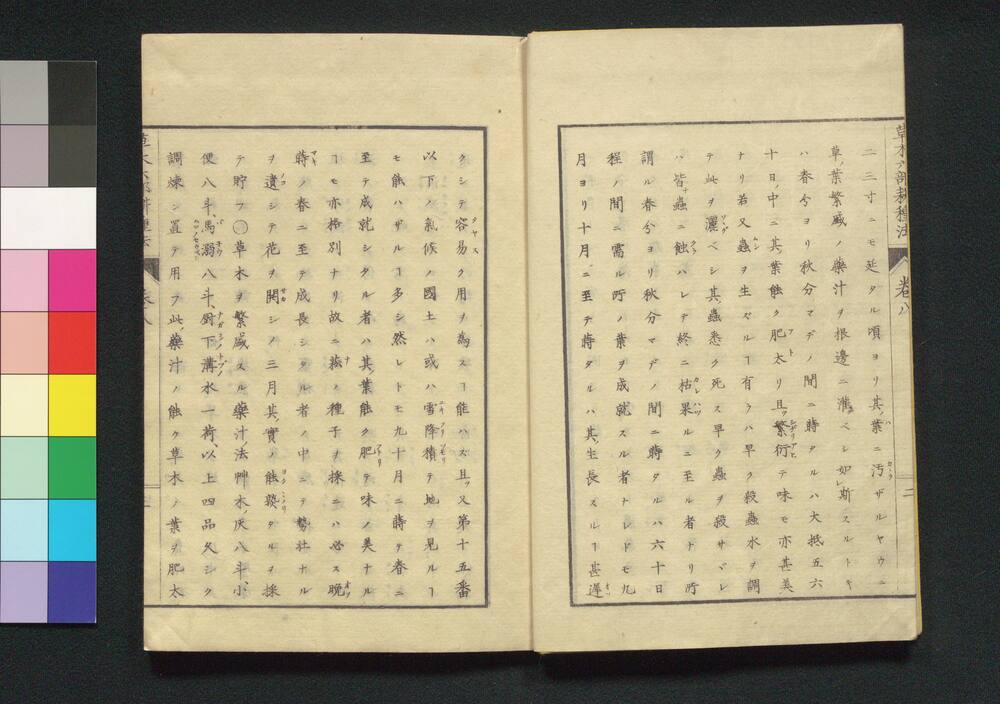 草木六部耕種法 卷八
二三寸ニモ延タル頃ヨリ其ノ葉ニ汚ザルヤウニ
草ノ葉繁盛ノ藥汁ヲ根邊ニ澆ベシ如斯スルトキ
ハ春分ヨリ秋分マデノ間ニ蒔タルハ大抵五六
十日ノ中ニ其葉能ク肥太リ且ツ繁衍テ味モ亦甚美
ナリ若又蟲ヲ生ズルヿ有ラハ早ク殺蟲水ヲ調
テ此ヲ灑ベシ其蟲悉ク死ス早ク蟲ヲ殺サバレ
ハ皆蟲ニ蝕ハレテ終ニ枯果ルニ至ル者ナリ所
謂ル春分ヨリ秋分マデノ間ニ蒔タルハ六十日
程ノ間ニ需ル所ノ葉ヲ成就スル者ナレドモ九
月ヨリ十月ニ至テ蒔タルハ其ノ生長スルヿ甚遲
クシテ容易ク用ヲ為スヿ能ハス且ツ又第十五番
以下ノ氣候ノ國土ハ或ハ雪降積テ地ヲ見ルヿ
モ能ハザルヿ多シ然レトモ九十月ニ蒔テ春ニ
至テ成就シタル者ハ其ノ葉能ク肥テ味ノ美ナル
ヿモ亦格別ナリ故ニ菘ノ種子ヲ採ニハ必ス晩
蒔ノ春ニ至テ成長シタル者ノ中ニテ勢壮ナル
ヲ遺シテ花ヲ開シメ三月其ノ實ノ能熟タルヲ採
テ貯フ〇草木ヲ繁盛スル藥汁ノ法艸木ノ灰八斗、小
便八斗、馬溺八斗、廚下溝水一荷、以上四品久シク
調煉シ置テ用フ此ノ藥汁ノ能ク草木ノ葉ヲ肥太